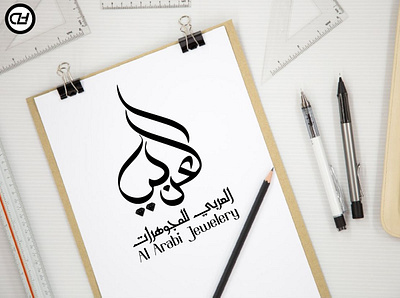 العربي
العربي للمجوهرات
Al Arabi Jewelery